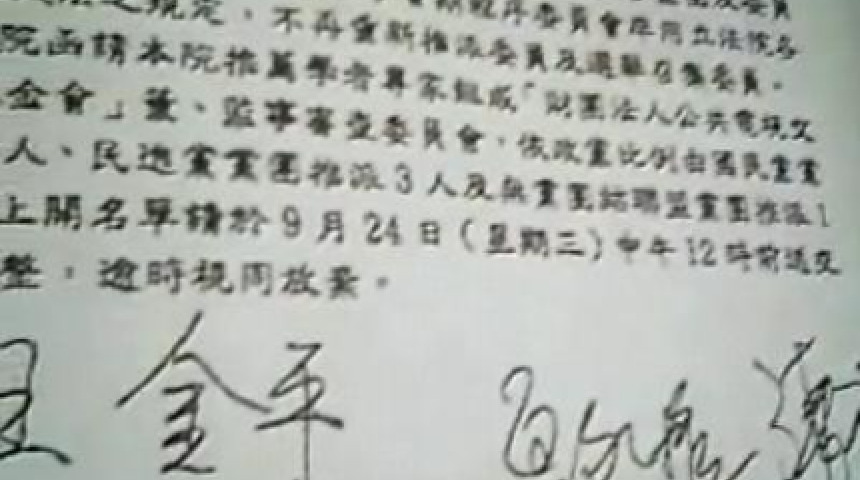 規定，不再重新推派委員及選舉召集委員。
院函請本院推薦學者專家組成「財團法人公共電視文
金會」董、監事審查委員會，依政黨比例由國民黨黨
人、民進黨黨團推派3人及無黨團結聯盟黨團推派1
上開名單請於9月24日（星期三）中午12時前送交
整，逾時視同放棄。
王金平